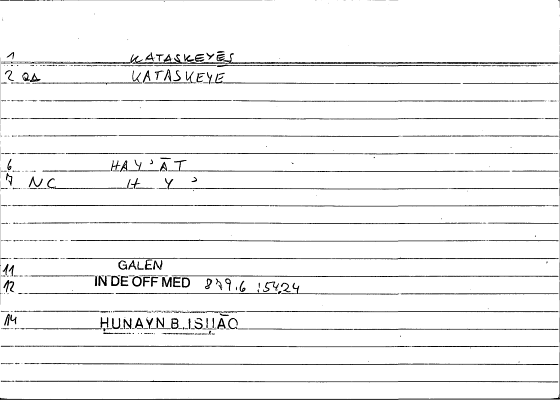 1 KATASKEYĒS
2 QA KATASKEYE
6 HAY'ĀT
7 NC H Y '
11 GALEN
12 IN DE OFF MED 879.6 :54,24
14 ḤUNAYN B. ISḤĀQ